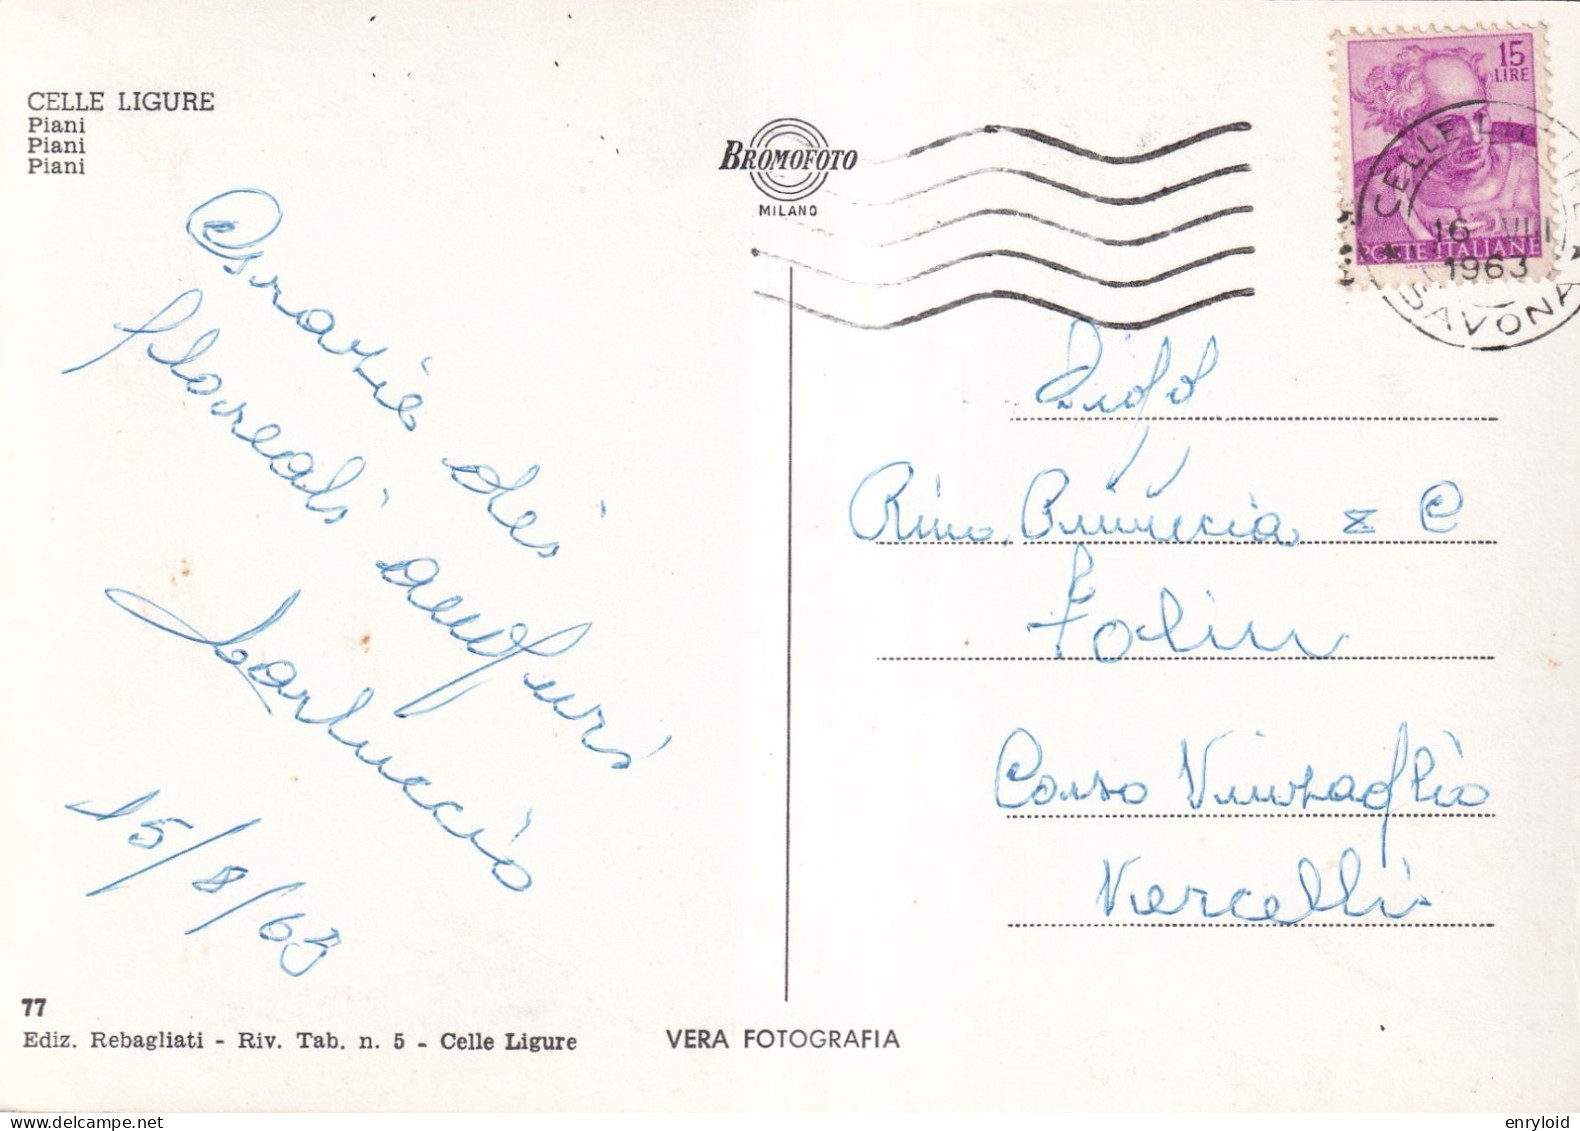 CELLE LIGURE
Piani
Piani
Piani
BROMOFOTO
MILANO
15
LIRE
POSTE ITALIANE
CELLE LIGURE
16 VIII
1963
SAVONA
Grazie dei
floreali auguri
Carluccio
15/8/63
Rino, e C
Folin
Corso Vinzaglio
Vercelli
77
Ediz. Rebagliati - Riv. Tab. n. 5 - Celle Ligure
VERA FOTOGRAFIA
www.delcampe.net
enryloid